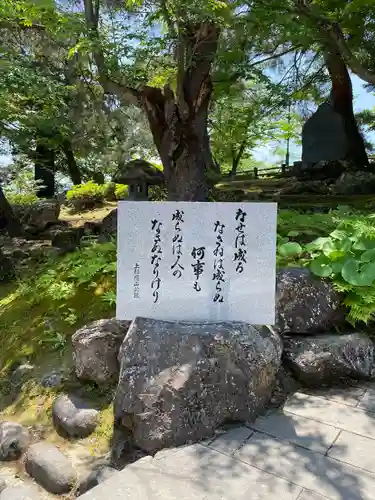 なせば成る
なさねば成らぬ
何事も
成らぬは人の
なさぬなりけり
上杉鷹山公訓